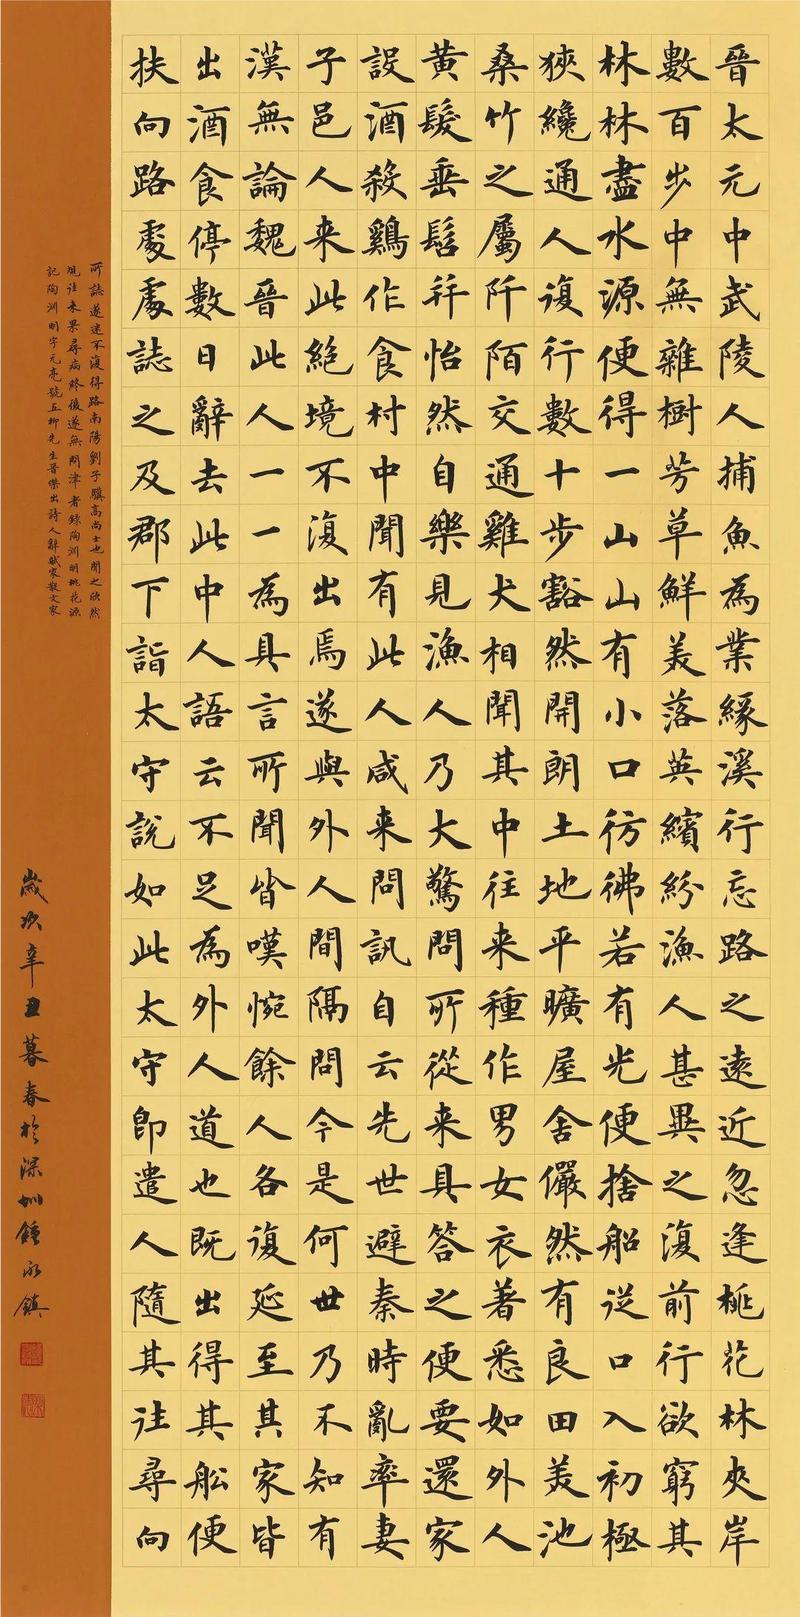 晉太元中武陵人捕魚為業緣溪行忘路之遠近忽逢桃花林夾岸
數百步中無雜樹芳草鮮美落英繽紛漁人甚異之復前行欲窮其
林林盡水源便得一山山有小口彷彿若有光便捨船從口入初極
狹纔通人復行數十步豁然開朗土地平曠屋舍儼然有良田美池
桑竹之屬阡陌交通雞犬相聞其中往来種作男女衣著悉如外人
黄髮垂髫并怡然自樂見漁人乃大驚問所從来具答之便要還家
設酒殺鷄作食村中聞有此人咸来問訊自云先世避秦時亂率妻
子邑人来此絕境不復出焉遂與外人間隔問今是何世乃不知有
漢無論魏晉此人一一為具言所聞皆嘆惋餘人各復延至其家皆
出酒食停數日辭去此中人語云不足為外人道也既出得其船便
扶向路處處誌之及郡下詣太守說如此太守即遣人隨其往尋向
所誌遂迷不復得路南陽劉子驥高尚士也聞之欣然
規往未果尋病終後遂無問津者錄陶渊明桃花源
記陶渊明字元亮號五柳先生晉傑出詩人辭賦家散文家
歲次辛丑暮春於深圳鍾永鎮